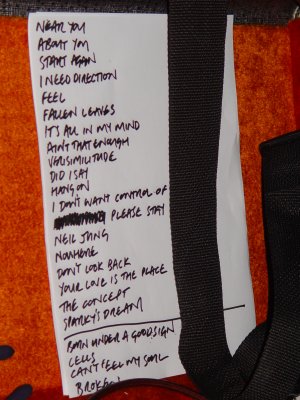 NEAR YOU
ABOUT YOU
START AGAIN
I NEED DIRECTION
FEEL
FALLEN LEAVES
IT'S ALL IN MY MIND
AINT THAT ENOUGH
VERISIMILITUDE
DID I SAY
HANG ON
I DON'T WANT CONTROL OF
PLEASE STAY
NEIL JUNG
NOWHERE
DON'T LOOK BACK
YOUR LOVE IS THE PLACE
THE CONCEPT
SPARKY'S DREAM
BORN UNDER A GOOD SIGN
CELLS
CAN'T FEEL MY SOUL
BROKEN